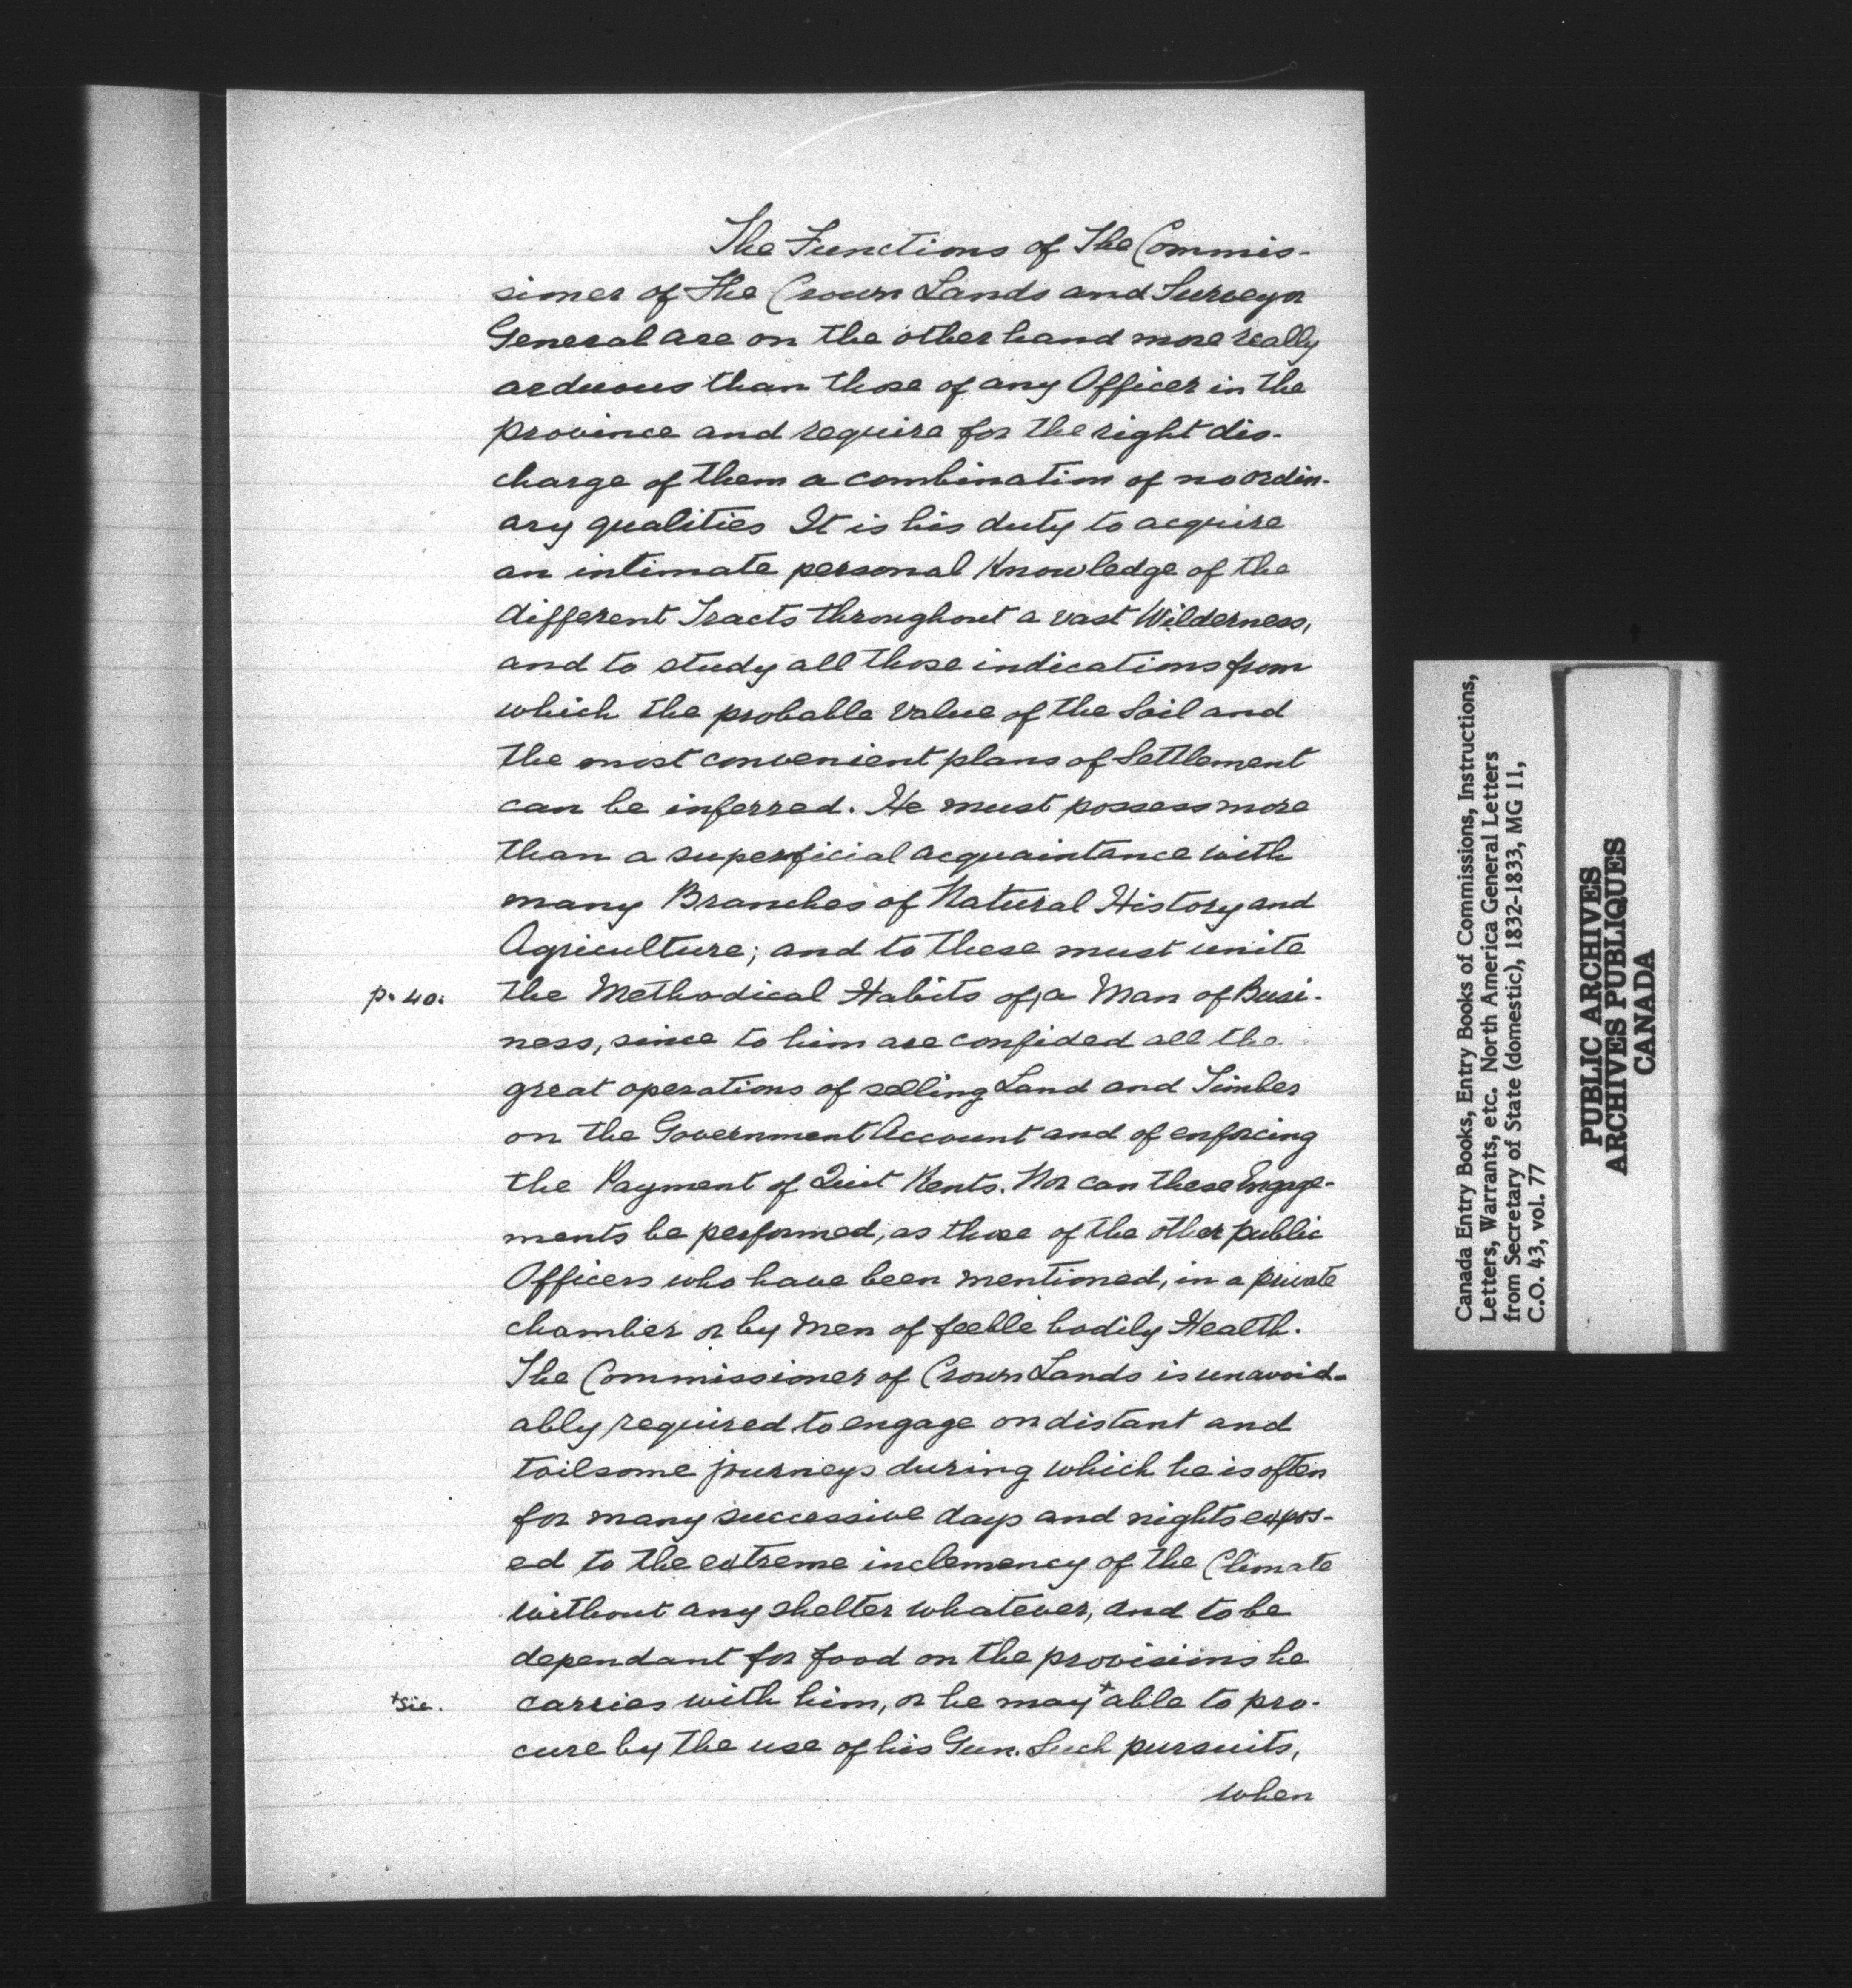 The Functions of The Commis-
sioner of The Crown Lands and Surveyor
General are on the other hand more really
arduous than those of any Officer in the
province and require for the right dis-
charge of them a combination of no ordin-
ary qualities It is his duty to acquire
an intimate personal Knowledge of the
different Tracts throughout a vast Wilderness,
and to study all those indications from
which the probable value of the Soil and
the most convenient plans of Settlement
can be inferred. He must possess more
than a superficial acquaintance with
many Branches of Natural History and
Agriculture; and to these must unite
p. 40. the Methodical Habits of, a Man of Busi-
ness, since to him are confided all the
great operations of selling Land and Timber
on the Government Account and of enforcing
the Payment of Quit Rents. Nor can these Engage-
ments be performed, as those of the other public
Officers who have been mentioned, in a private
chamber or by Men of feeble bodily Health.
The Commissioner of Crown Lands is unavoid-
ably required to engage on distant and
toilsome journeys during which he is often
for many successive days and nights expos-
ed to the extreme inclemency of the Climate
without any shelter whatever, and to be
dependant for food on the provisions he
+sic. carries with him, or he may + able to pro-
cure by the use of his Gun. Such pursuits,
when
Canada Entry Books, Entry Books of Commissions, Instructions,
Letters, Warrants, etc. North America General Letters
from Secretary of State (domestic), 1832-1833, MG 11,
C.O. 43, vol. 77
PUBLIC ARCHIVES
ARCHIVES PUBLIQUES
CANADA